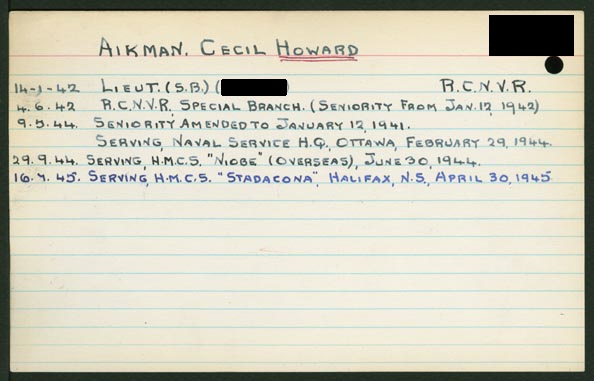 AIKMAN. CECIL HOWARD
14-1-42 LIEUT. (S.B.) ( ) R.C.N.V.R.
4.6.42 R.C.N.V.R. SPECIAL BRANCH. (SENIORITY FROM JAN. 12, 1942)
9.5.44. SENIORITY AMENDED TO JANUARY 12, 1941.
SERVING, NAVAL SERVICE H.Q., OTTAWA, FEBRUARY 29, 1944.
29.9.44. SERVING, H.M.C.S. "NIOBE" (OVERSEAS), JUNE 30, 1944.
16.7.45. SERVING, H.M.C.S. "STADACONA", HALIFAX, N.S., APRIL 30, 1945